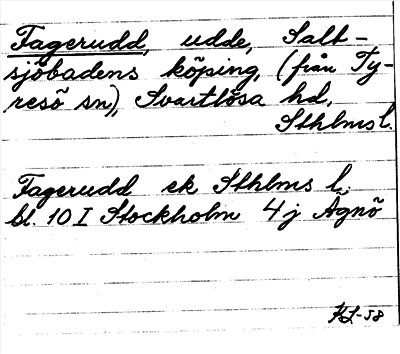 Fagerudd, udde, Salt-
sjöbadens köping, (från Ty-
resö sn), Svartlösa hd,
Sthlms l.
Fagerudd ek Sthlms l;
bl. 10 I Stockholm 4 j Ägnö
KL-58